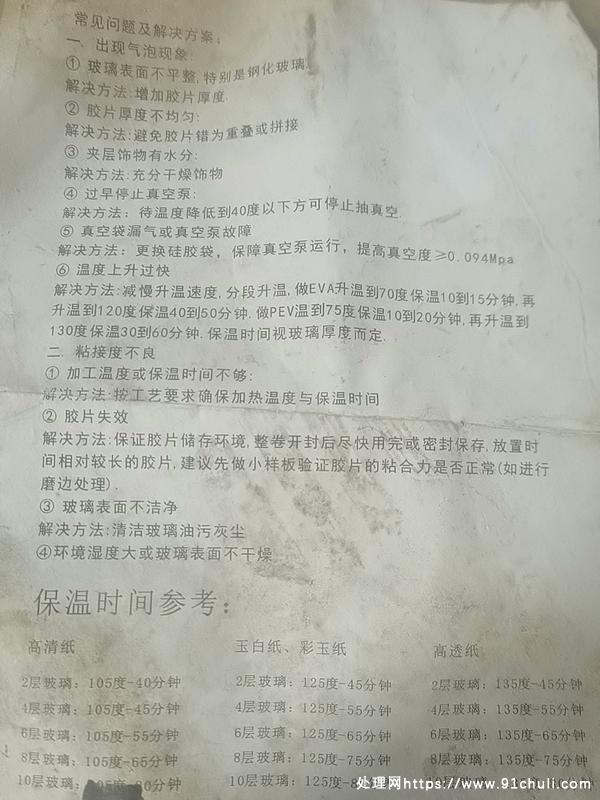 常见问题及解决方案:
一. 出现气泡现象:
① 玻璃表面不平整,特别是钢化玻璃.
解决方法:增加胶片厚度.
② 胶片厚度不均匀:
解决方法:避免胶片错为重叠或拼接
③ 夹层饰物有水分:
解决方法:充分干燥饰物
④ 过早停止真空泵:
解决方法: 待温度降低到40度以下方可停止抽真空.
⑤ 真空袋漏气或真空泵故障
解决方法: 更换硅胶袋, 保障真空泵运行, 提高真空度≥0.094Mpa
⑥ 温度上升过快
解决方法:减慢升温速度,分段升温,做EVA升温到70度保温10到15分钟,再
升温到120度保温40到50分钟.做PEV温到75度保温10到20分钟,再升温到
130度保温30到60分钟.保温时间视玻璃厚度而定.
二. 粘接度不良
① 加工温度或保温时间不够:
解决方法:按工艺要求确保加热温度与保温时间
② 胶片失效
解决方法:保证胶片储存环境,整卷开封后尽快用完或密封保存,放置时
间相对较长的胶片,建议先做小样板验证胶片的粘合力是否正常(如进行
磨边处理).
③ 玻璃表面不洁净
解决方法:清洁玻璃油污灰尘
④环境湿度大或玻璃表面不干燥
保温时间参考:
高清纸 玉白纸、彩玉纸 高透纸
2层玻璃: 105度-40分钟 2层玻璃: 125度-45分钟 2层玻璃: 135度-45分钟
4层玻璃: 105度-45分钟 4层玻璃: 125度-55分钟 4层玻璃: 135度-55分钟
6层玻璃: 105度-55分钟 6层玻璃: 125度-65分钟 6层玻璃: 135度-65分钟
8层玻璃: 105度-65分钟 8层玻璃: 125度-75分钟 8层玻璃: 135度-75分钟
10层玻璃: 分钟 10层玻璃: 125度
处理网https://www.91chuli.com